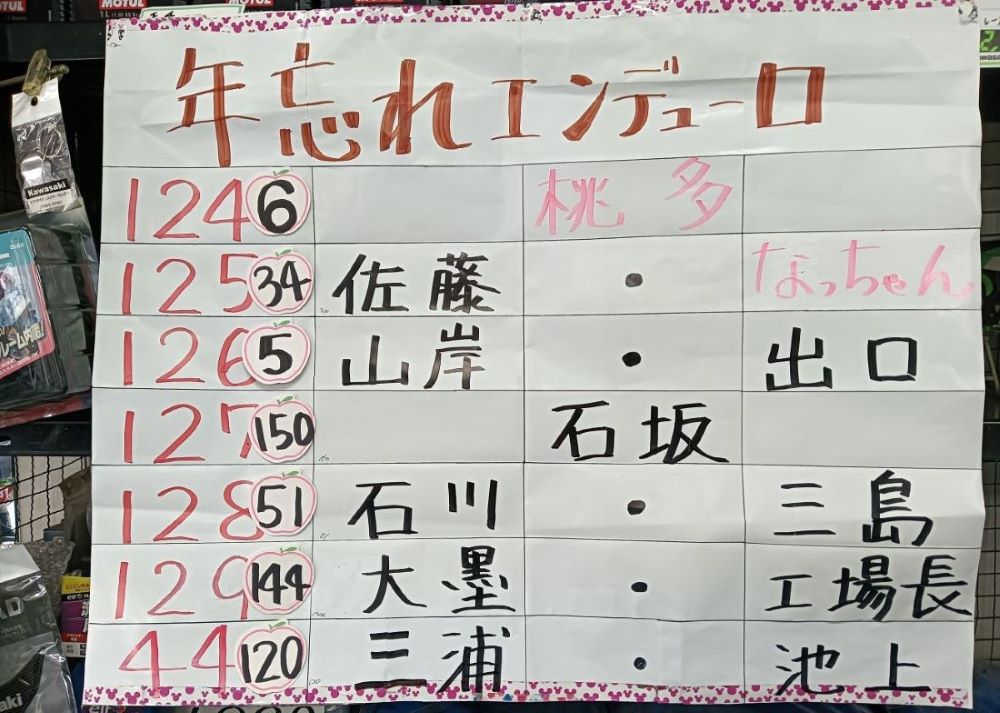 MOTUL MOTUL MOTUL
年忘れエンデューロ
124 6 桃多
125 34 佐藤 ・ なっちゃん
126 5 山岸 ・ 出口
127 150 石坂
128 51 石川 ・ 三島
129 144 大墨 ・ 工場長
44 120 三浦 ・ 池上
Kawasaki